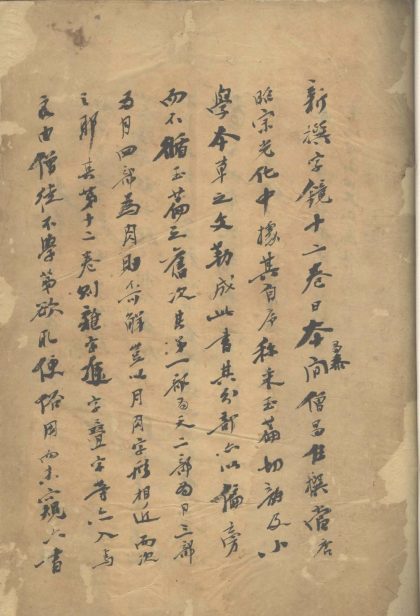 新撰字鏡十二卷日本間僧昌住撰當唐
昭宗光化中據其自序稱末玉篇切韻及小
學本草之文勒成此書其分部以偏旁
而不循玉篇之舊次其第一部為天二部為日三部
為月四部為肉則不解豈以月肉字形相近而次
之耶其第十二卷則雜字重字疊字等亦入焉
良由僧徒不學第欲取便俗用而未窺六書